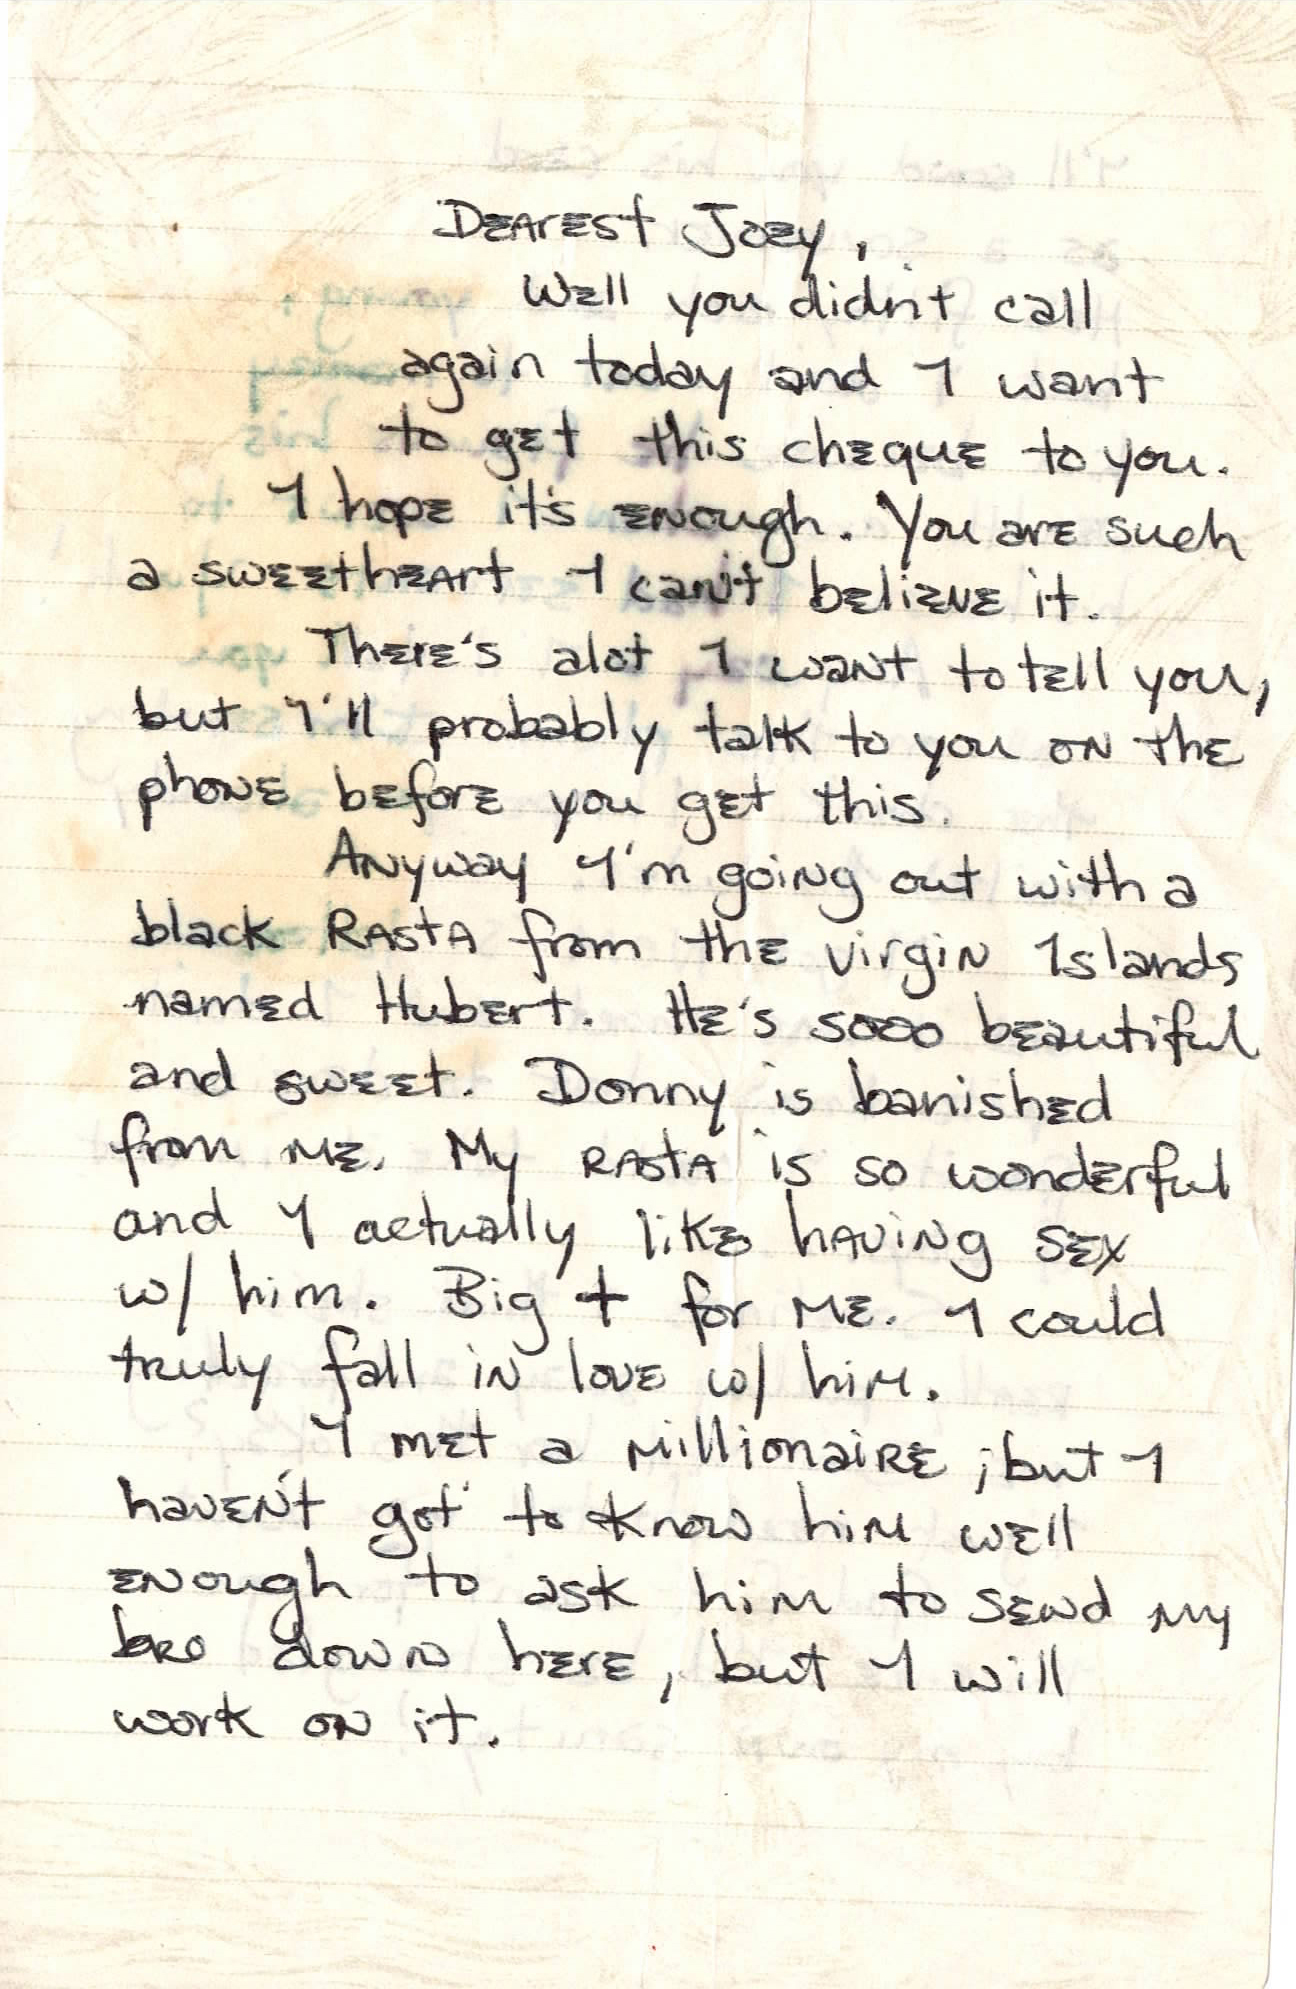 Dearest Joey,
Well you didn't call
again today and I want
to get this cheque to you.
I hope it's enough. You are such
a sweetheart I can't believe it.
There's alot I want to tell you,
but I'll probably talk to you on the
phone before you get this.
Anyway I'm going out with a
black Rasta from the virgin Islands
named Hubert. He's sooo beautiful
and sweet. Donny is banished
from me. My Rasta is so wonderful
and I actually like having sex
w/ him. Big + for me. I could
truly fall in love w/ him.
I met a millionaire, but I
haven't got to know him well
enough to ask him to send my
bro down here, but I will
work on it.